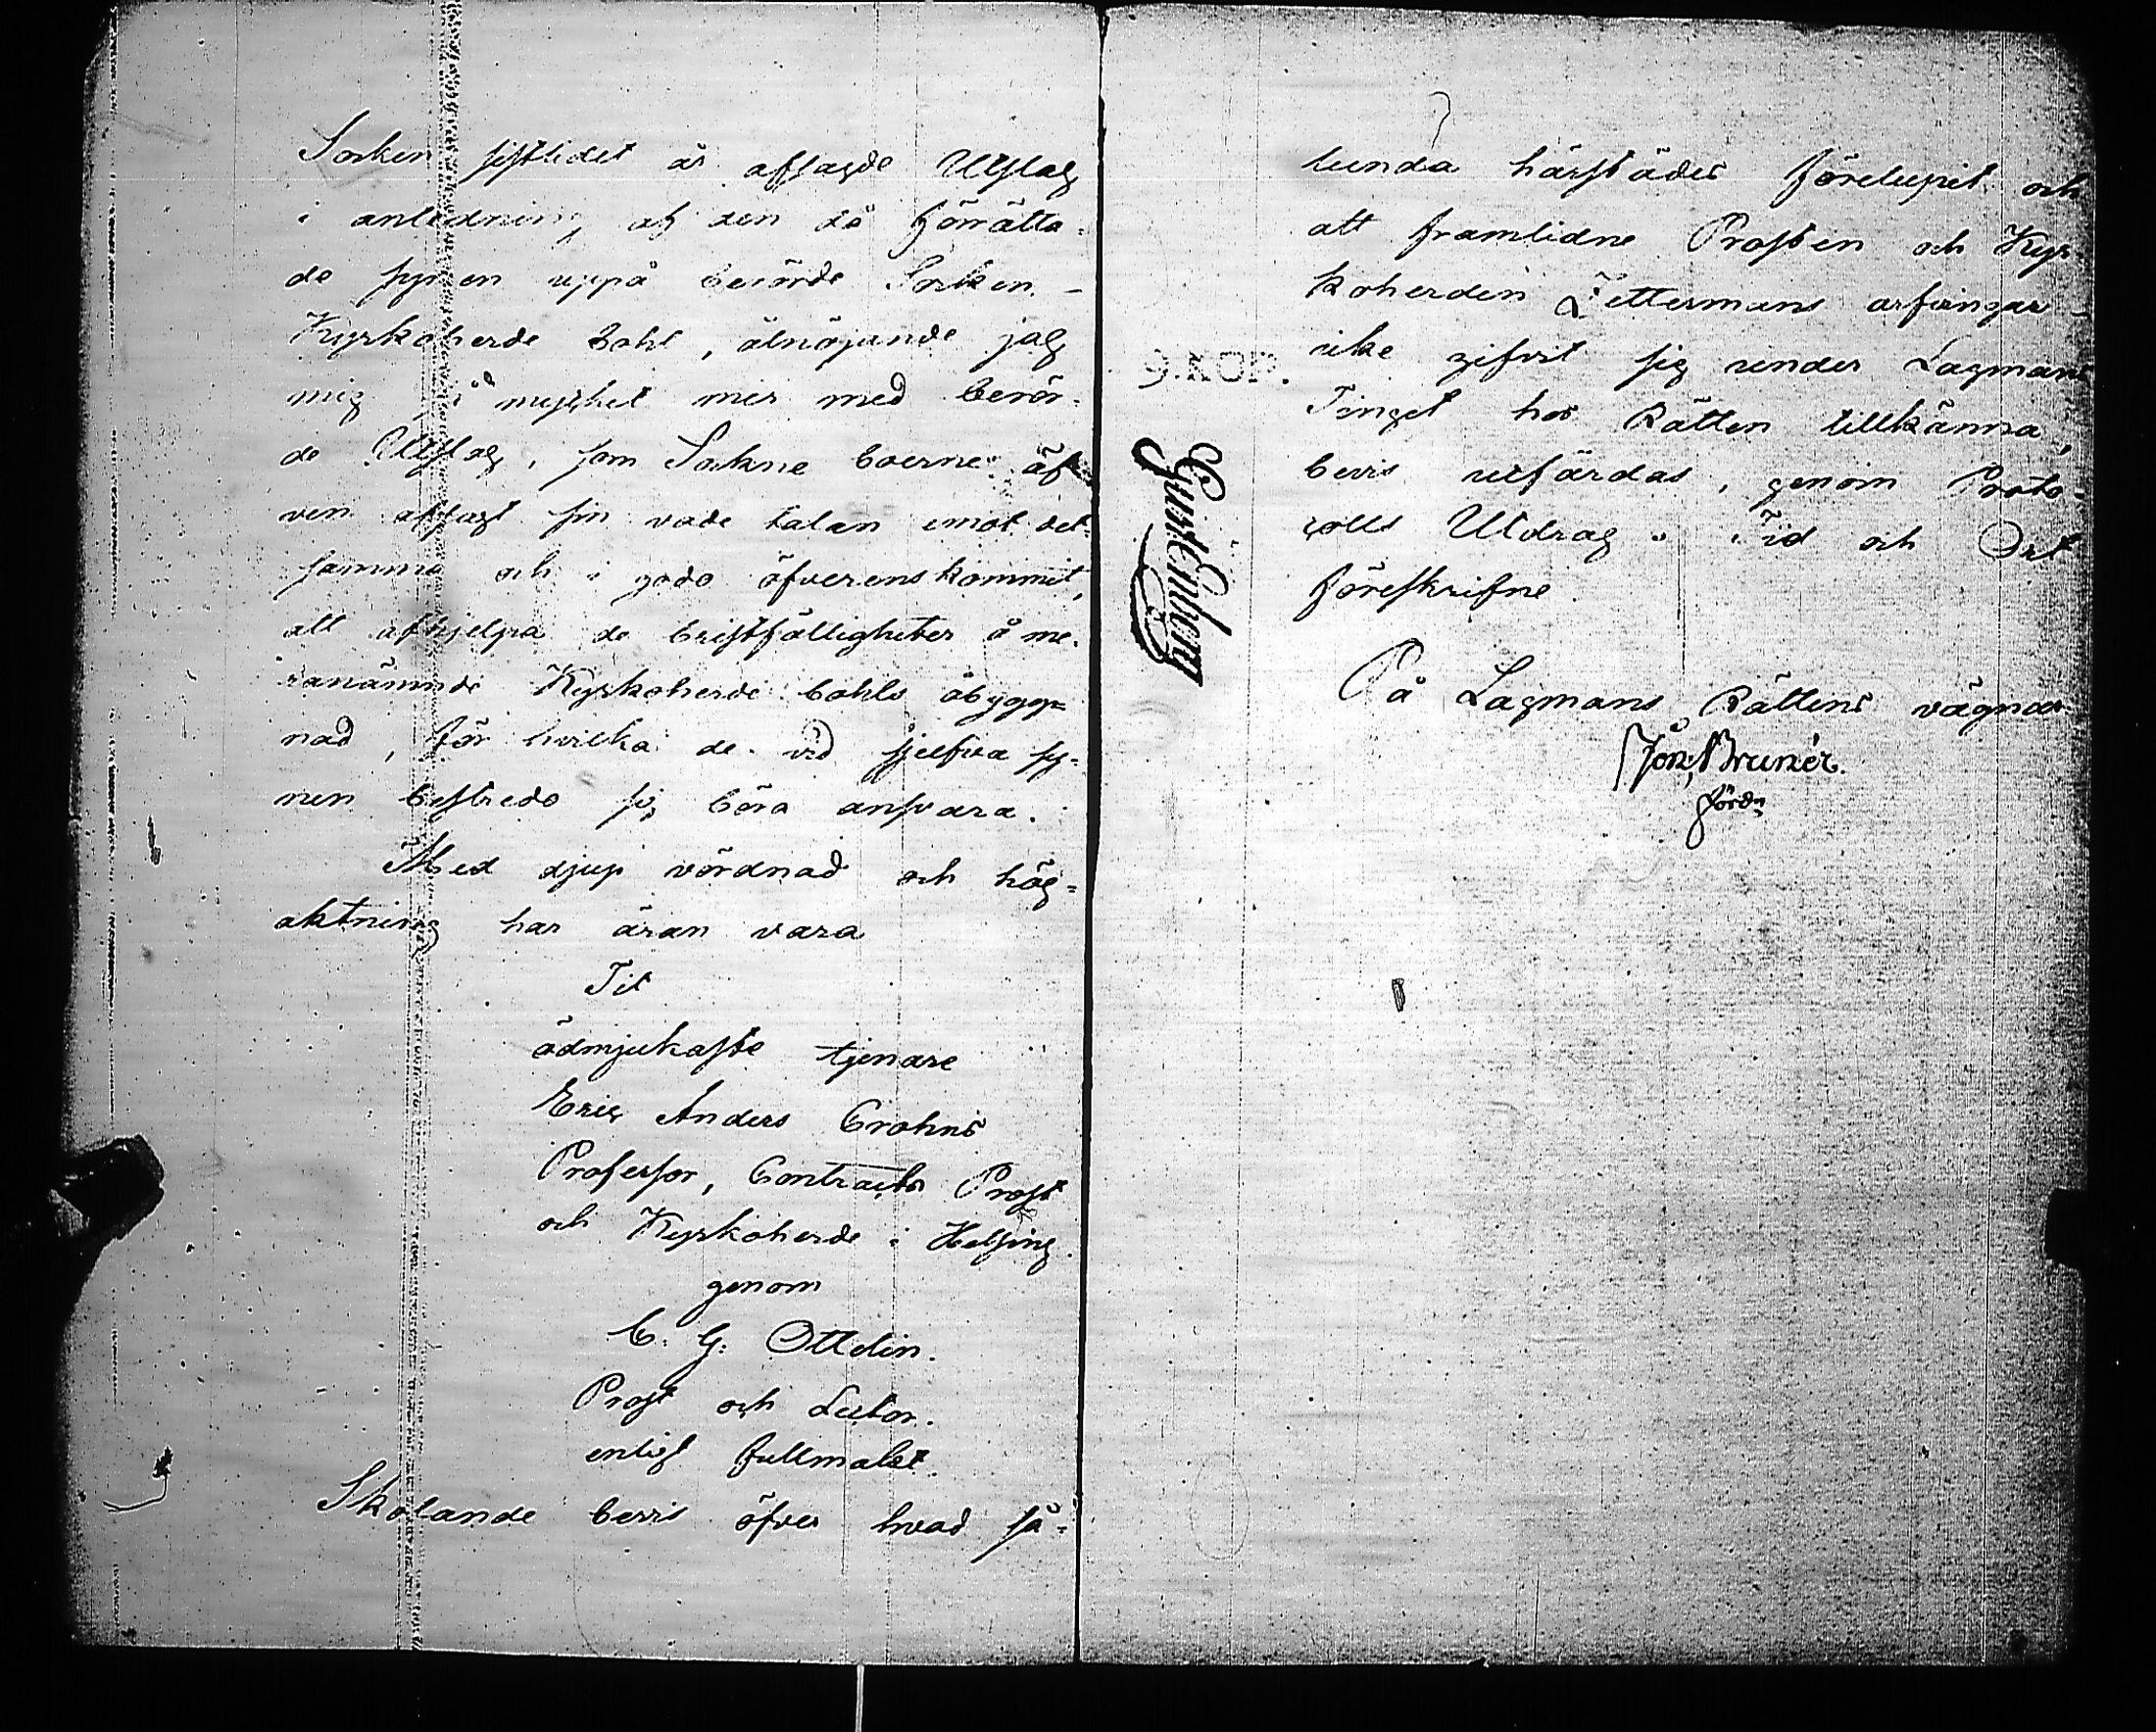 Socken sistledet år afsagde Utslag
i anledning af den då förrätta-
de synen uppå berörde Socken.-
Kyrkoherde Bohl, åtnöjande jag
mig så mycket mer med berör-
de Utslag, som Sokne boerne äf
ven afsagt sin vade talan emot det
samma och i godo öfverenskommit,
att afhjelpa de bristfälligheter å me-
ranämnde Kyrkoherde bohls åbygg-
nad, för hvilka de vid sjelfva sy-
nen bestredo sig böra ansvara.
Med djup vördnad och hög-
aktning har äran vara
Tit
ödmjukaste tjenare
Eric Anders Crohns
Professor, Contracts Prost
och Kyrkoherde i Helsing
genom
C. G. Ottelin.
Prost och Lector.
enligt fullmakt.
Skolande bevis öfver hvad så-
lunda härstädes förelupit och
att framlidne Prosten och Kyr
koherden Zettermans arfvingar
icke gifvit sig under Lagmans
Tinget hos Rätten tillkänna,
bevis utfärdas, genom Proto-
colls Utdrag. Tid och Ort
föreskrifne.
På Lagmans Rättens vägnar
Jon. Brunér.
förordn
9. KOP.
Gust Enberg